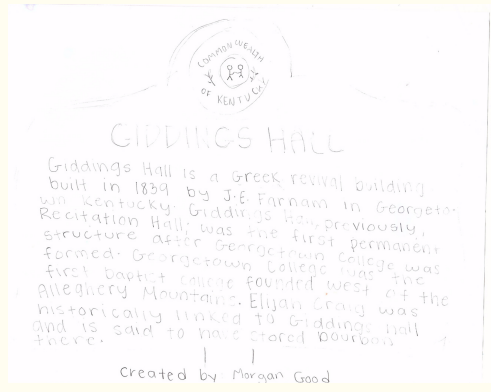 COMMONWEALTH
OF KENTUCKY
GIDDINGS HALL
Giddings Hall is a Greek revival building
built in 1839 by J.E. Farnam in Georgeto-
wn Kentucky. Giddings Hall, previously,
Recitation Hall, was the first permanent
structure after Georgetown College was
formed. Georgetown College was the
first baptist college founded west of the
Alleghery Mountains. Elijah Craig was
historically linked to Giddings Hall
and is said to have stored bourbon
there.
created by Morgan Good